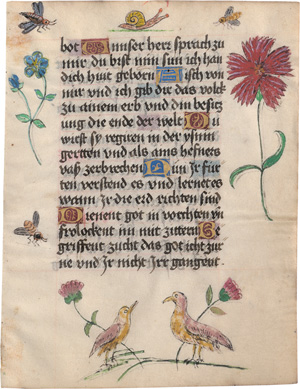 bot Unser herz sprach zu
mir du bist min sun ich han
dich hiut geborn Aisch von
mir und ich gib dir das volck
zu ainem erb und din besitz
ung die ende der welt U
wirst sy regiren in der ysnin
gertten und als ains hefners
vaß zerbrechen Nun Jr für
sten verstend es und lernetes
wann Jr die erd richten sind
Dienent got in vorchten vn
frolockent im mit zittern Be
griffent zucht das got icht zur
ne und Jr nicht Jrr gangent